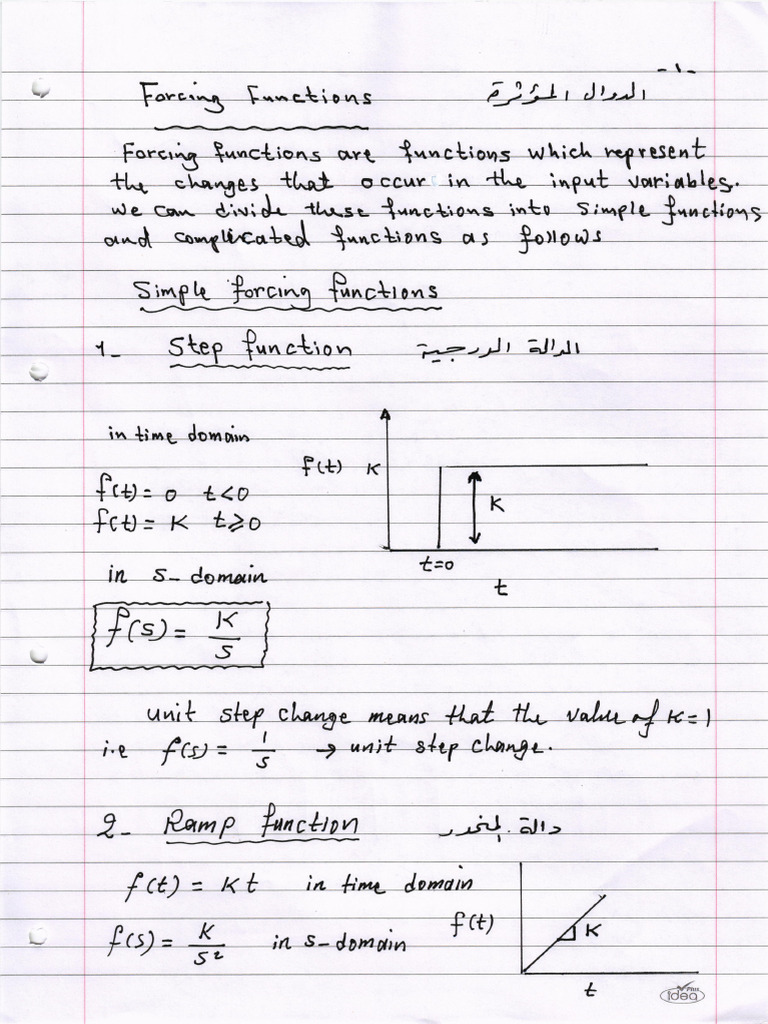 -١-
Forcing Functions الدوال المؤثرة
Forcing functions are functions which represent
the changes that occur in the input variables.
we can divide these functions into simple functions
and complicated functions as follows
Simple forcing functions
1- Step function الدالة الدرجية
in time domain
f(t) K
f(t) = 0 t<0
f(t) = K t≥0
K
t=0
t
in s-domain
f(s) = K/s
unit step change means that the value of K=1
i.e f(s) = 1/s → unit step change.
2- Ramp function دالة المنحدر
f(t) = Kt in time domain
f(s) = K/s² in s-domain
f(t) K
t
Plus
idea